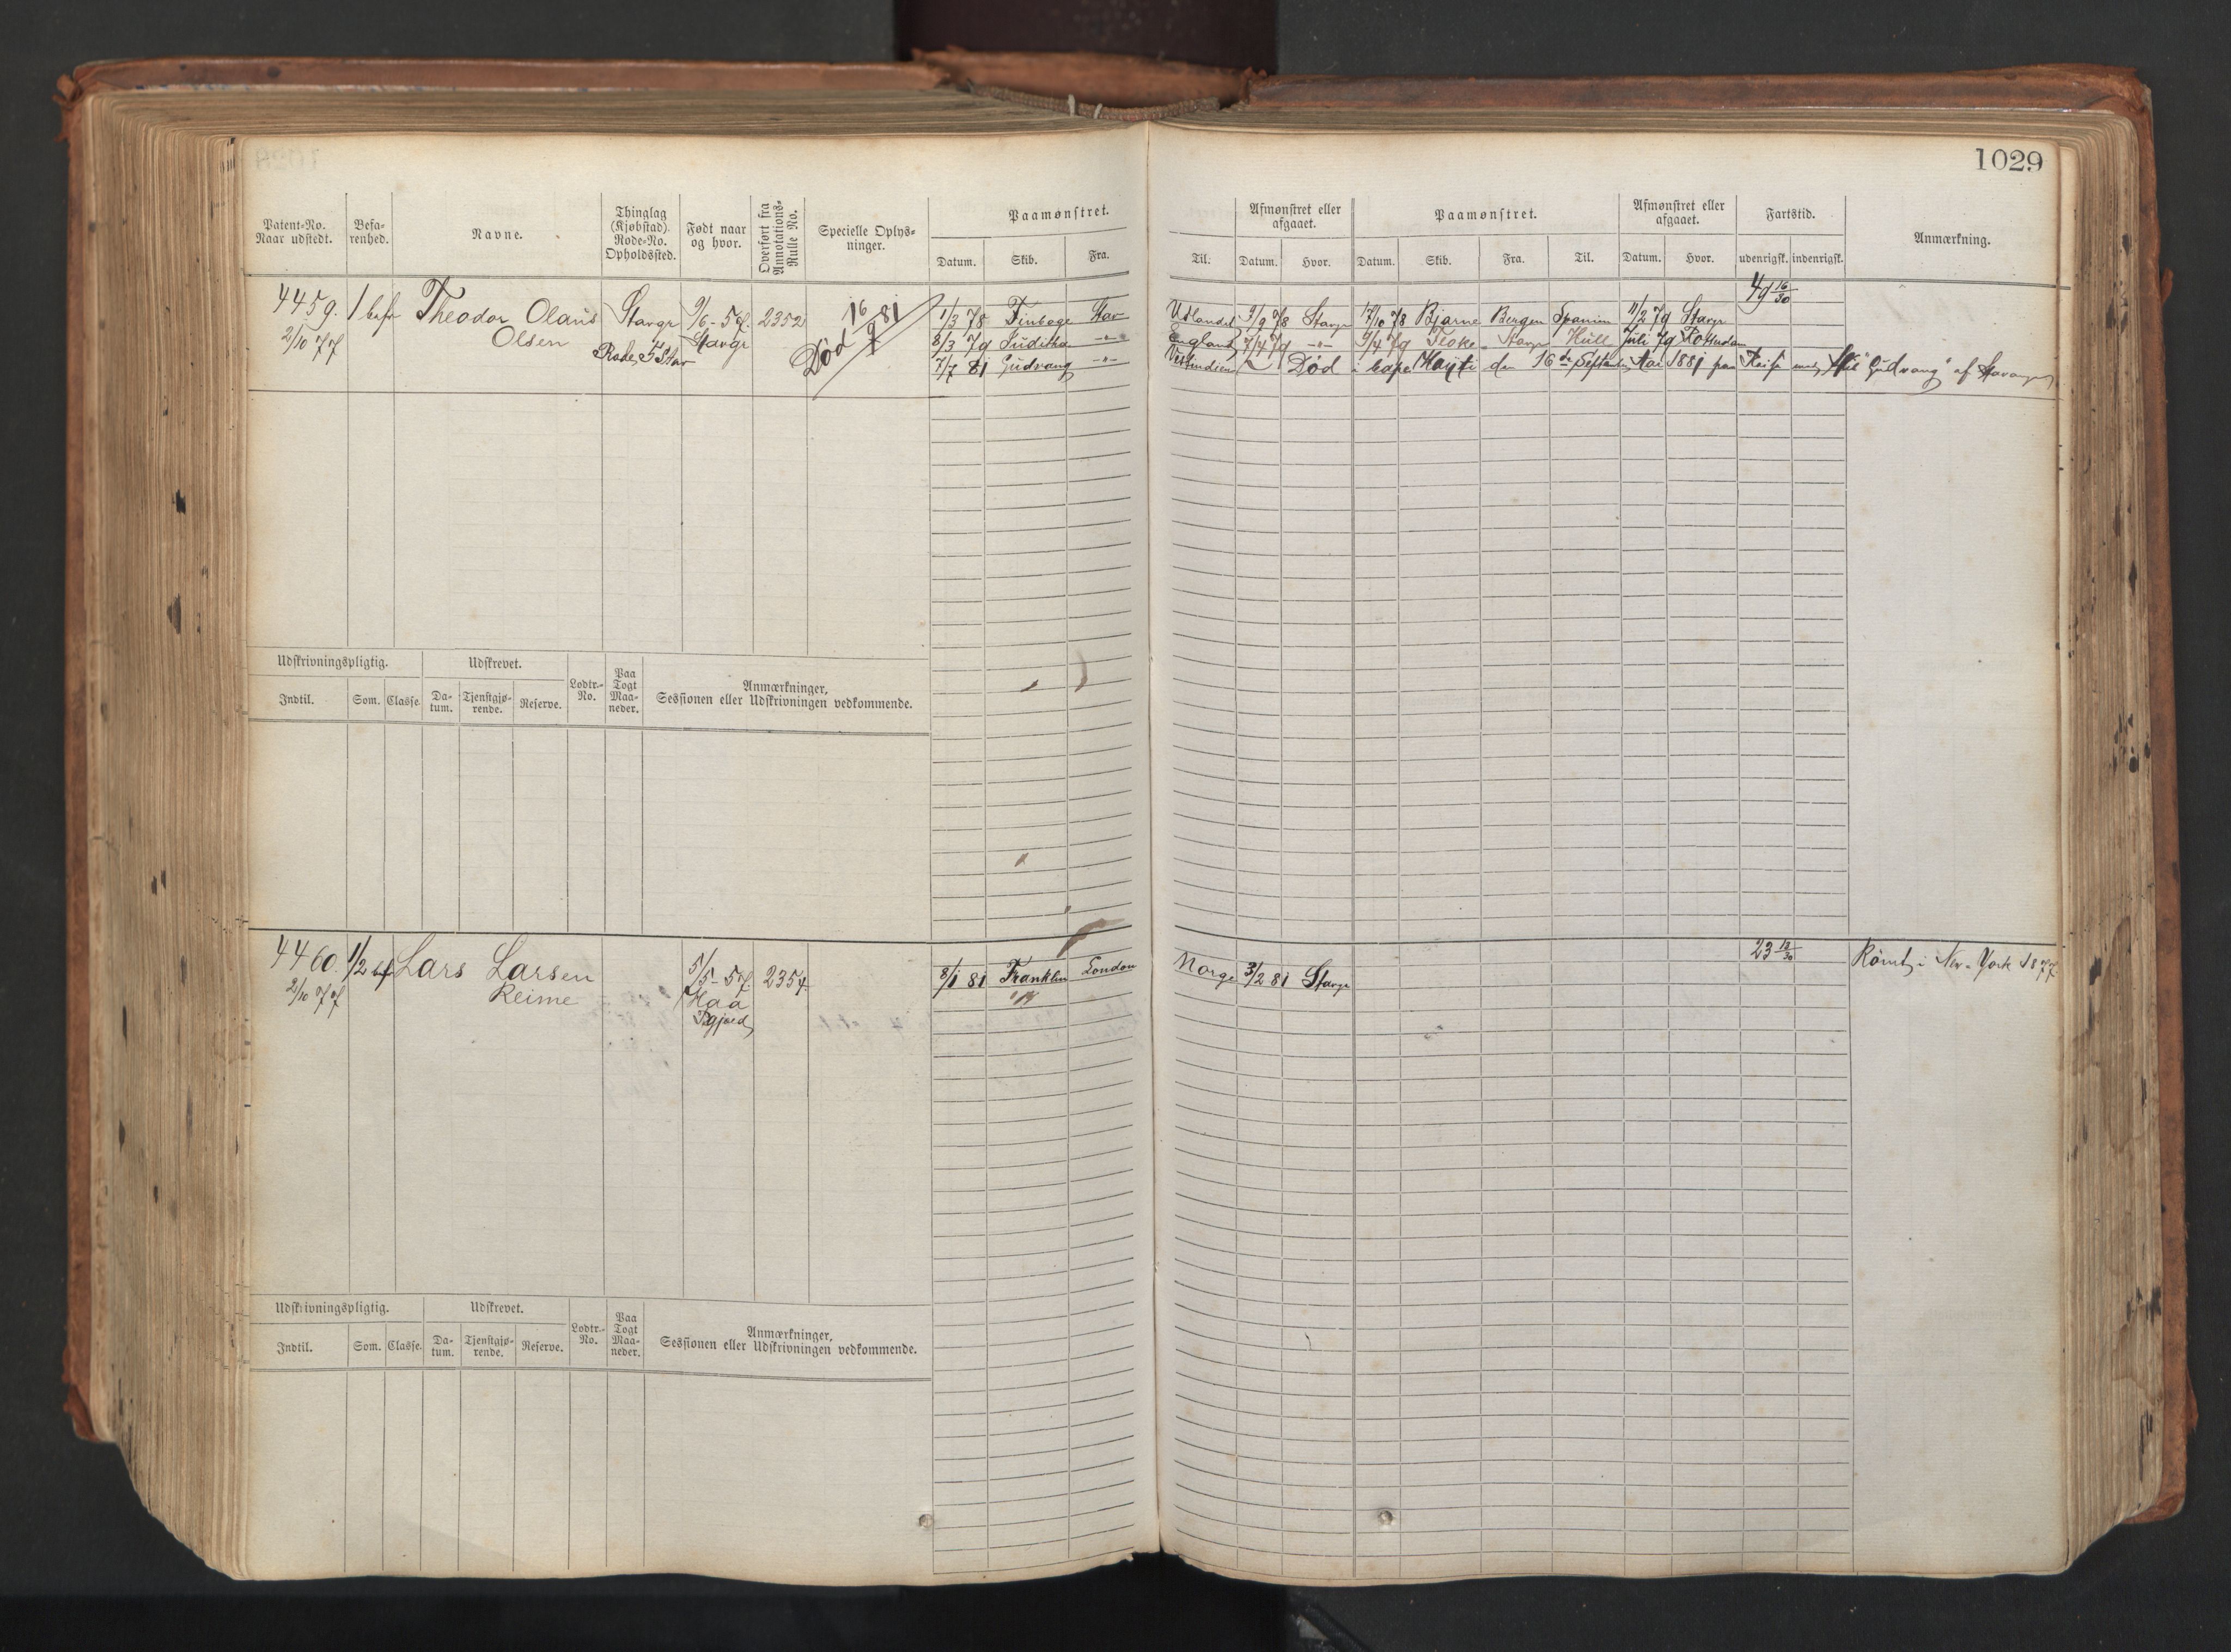 1029
Patent-No. Naar udstedt.
Befa-renhed.
Navne.
Thinglag (Kjøbstad). Rode-No. Opholdssted.
Født naar og hvor.
Overført fra Annotations-Rulle No.
Specielle Oplys-ninger.
Paamønstret.
Datum. Skib. Fra.
Til.
Afmønstret eller afgaaet.
Datum. Hvor.
Paamønstret.
Datum. Skib. Fra. Til.
Afmønstret eller afgaaet.
Datum. Hvor.
Fartstid.
udenrigsk. indenrigsk.
Anmærkning.
4459. 1 bef Theodor Olaus Stavgr 9/6-57. 2352 Død 16/9 81
2/10 77 Olsen Rode 5 Stav Stavgr
49 16/30
1/3 78 Finboge Stav Udlandet 9/9 78 Stavgr 17/10 78 Bjarne Bergen Spanien 11/2 79 Stavgr
8/3 79 Juditha -"- England 7/4 79 -"- 9/4 79 Floke Stavgr Hull Juli 79 Rotterdam
7/7 81 Gudvang -"- Vestindien Død i Cape Hayti den 16de September 1881 paa Reise med Skib "Gudvang" af Stavanger
Udskrivningspligtig.
Indtil. Som. Classe.
Udskrevet.
Da-tum. Tjenstgjø-rende. Reserve.
Lodtr.-No.
Paa Togt Maa-neder.
Anmærkninger, Sessionen eller Udskrivningen vedkommende.
4460. 1/2 bef Lars Larsen 5/5-57. 2354
2/10 77 Reime Haa
8/1 81 Franklin London Norge 3/2 81 Stavgr
23 12/30
Rømt i New-York 1877.
Udskrivningspligtig.
Indtil. Som. Classe.
Udskrevet.
Da-tum. Tjenstgjø-rende. Reserve.
Lodtr.-No.
Paa Togt Maa-neder.
Anmærkninger, Sessionen eller Udskrivningen vedkommende.